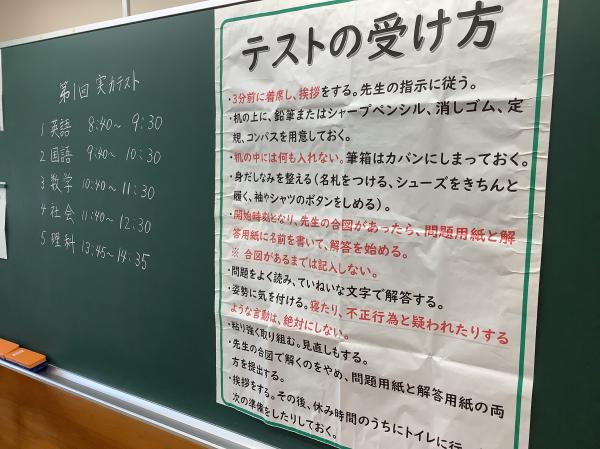 第1回 実力テスト
1 英語 8:40～ 9:30
2 国語 9:40～ 10:30
3 数学 10:40～ 11:30
4 社会 11:40～ 12:30
5 理科 13:45～ 14:35
テストの受け方
・3分前に着席し、挨拶をする。先生の指示に従う。
・机の上に、鉛筆またはシャープペンシル、消しゴム、定
規、コンパスを用意しておく。
・机の中には何も入れない。筆箱はカバンにしまっておく。
・身だしなみを整える(名札をつける、シューズをきちんと
履く、袖やシャツのボタンをしめる)。
・開始時刻となり、先生の合図があったら、問題用紙と解
答用紙に名前を書いて、解答を始める。
※ 合図があるまでは記入しない。
・問題をよく読み、ていねいな文字で解答する。
・姿勢に気を付ける。寝たり、不正行為と疑われたりする
ような言動は、絶対にしない。
・粘り強く取り組む。見直しもする。
・先生の合図で解くのをやめ、問題用紙と解答用紙の両
方を提出する。
・挨拶をする。その後、休み時間のうちにトイレに行
次の準備をしたりしておく。